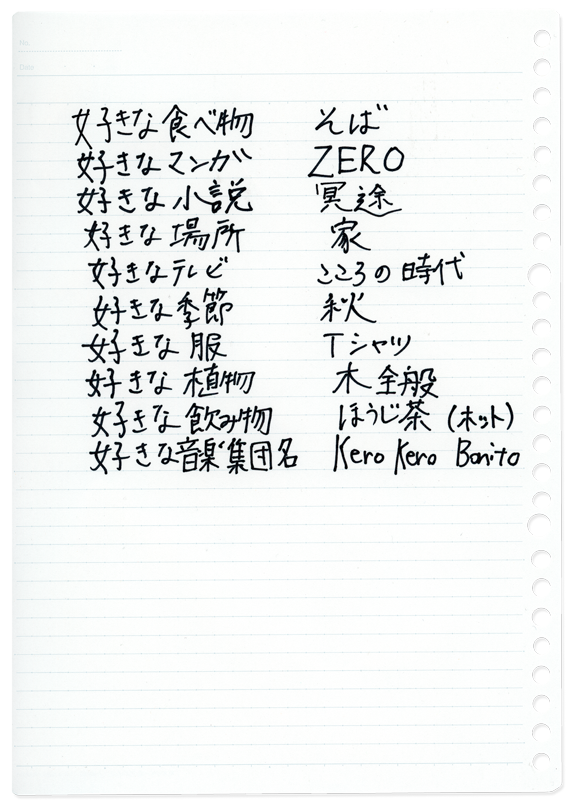 No.
Date
好きな食べ物 そば
好きなマンガ ZERO
好きな小説 冥途
好きな場所 家
好きなテレビ こころの時代
好きな季節 秋
好きな服 Tシャツ
好きな植物 木全般
好きな飲み物 ほうじ茶(ホット)
好きな音楽集団名 Kero Kero Bonito